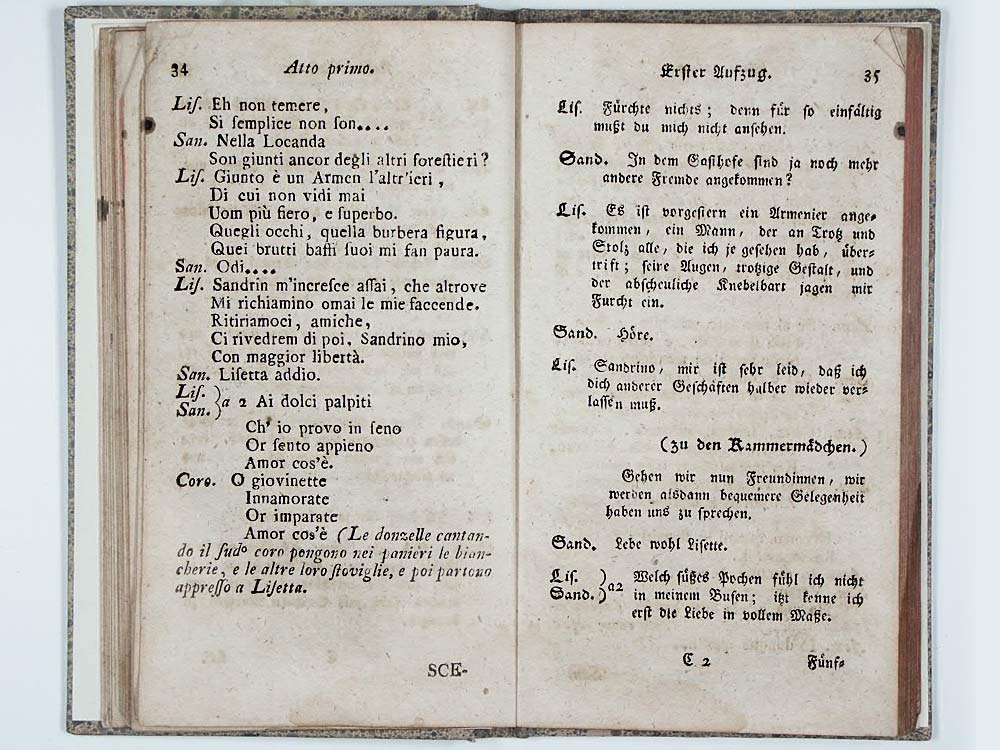 34 Atto primo.
Liſ. Eh non temere,
Si ſemplice non ſon....
San. Nella Locanda
Son giunti ancor degli altri foreſtieri?
Liſ. Giunto è un Armen l'altr'ieri,
Di cui non vidi mai
Uom più fiero, e ſuperbo.
Quegli occhi, quella burbera figura,
Quei brutti baffi ſuoi mi fan paura.
San. Odi....
Liſ. Sandrin m'increſce aſſai, che altrove
Mi richiamino omai le mie faccende.
Ritiriamoci, amiche,
Ci rivedrem di poi, Sandrino mio,
Con maggior libertà.
San. Liſetta addio.
Liſ.
San. } a 2 Ai dolci palpiti
Ch' io provo in ſeno
Or ſento appieno
Amor cos'è.
Coro. O giovinette
Innamorate
Or imparate
Amor cos'è (Le donzelle cantan-
do il ſudº coro pongono nei panieri le bian-
cherie, e le altre loro ſtoviglie, e poi partono
appreſſo a Liſetta.
SCE-
Erſter Aufzug. 35
Liſ. Fürchte nichts; denn für ſo einfältig
mußt du mich nicht anſehen.
Sand. In dem Gaſthofe ſind ja noch mehr
andere Fremde angekommen?
Liſ. Es iſt vorgeſtern ein Armenier ange-
kommen, ein Mann, der an Trotz und
Stolz alle, die ich je geſehen hab, über-
trift; ſeine Augen, trotzige Geſtalt, und
der abſcheuliche Knebelbart jagen mir
Furcht ein.
Sand. Höre.
Liſ. Sandrino, mir iſt ſehr leid, daß ich
dich anderer Geſchäften halber wieder ver-
laſſen muß.
(zu den Kammermädchen.)
Gehen wir nun Freundinnen, wir
werden alsdann bequemere Gelegenheit
haben uns zu ſprechen.
Sand. Lebe wohl Liſette.
Liſ. ) a2 Welch ſüßes Pochen fühl ich nicht
Sand. ) in meinem Buſen; itzt kenne ich
erſt die Liebe in vollem Maße.
C 2 Fünf-